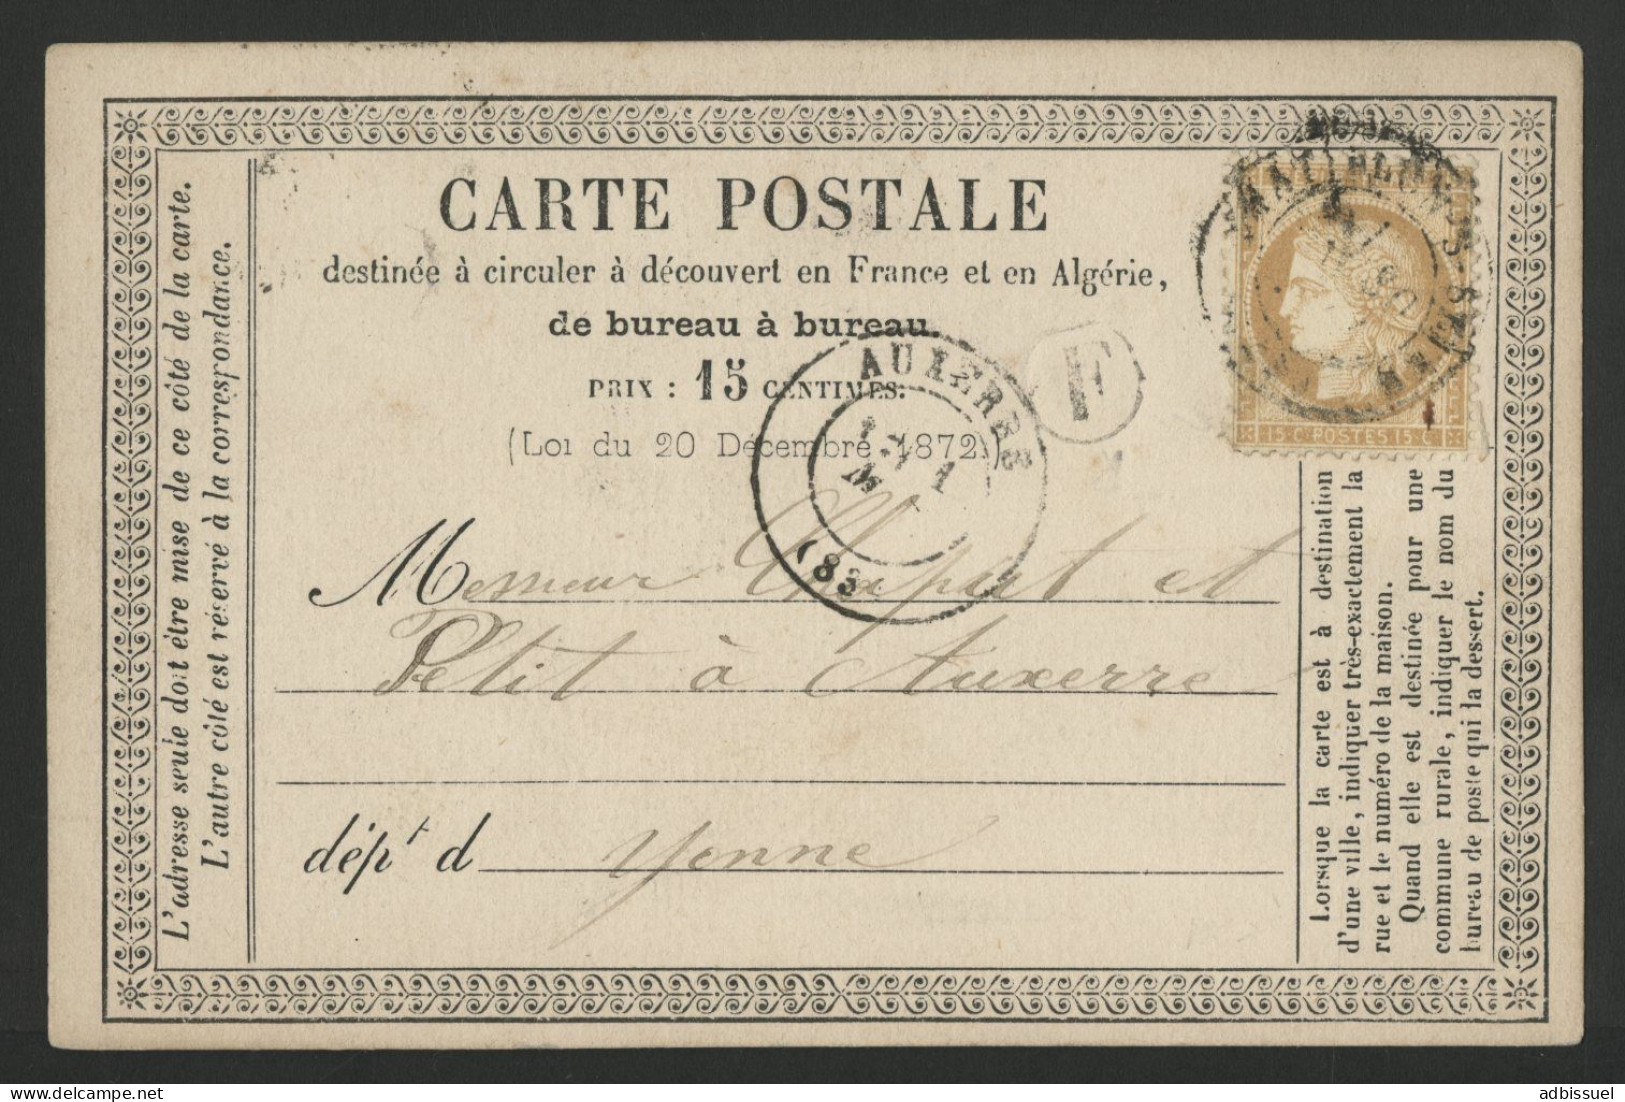 CARTE POSTALE
destinée à circuler à découvert en France et en Algérie,
de bureau à bureau.
PRIX : 15 CENTIMES.
(Loi du 20 Décembre 1872.)
CHATILLON-S-SEINE
15 C POSTES 15 C
AUXERRE
1
(83)
F
Messieur Chaput et
Petit à Auxerre
dépt d Yonne
L'adresse seule doit être mise de ce côté de la carte.
L'autre côté est réservé à la correspondance.
Lorsque la carte est à destination
d'une ville, indiquer très-exactement la
rue et le numéro de la maison.
Quand elle est destinée pour une
commune rurale, indiquer le nom du
bureau de poste qui la dessert.
adbissuel
delcampe.net